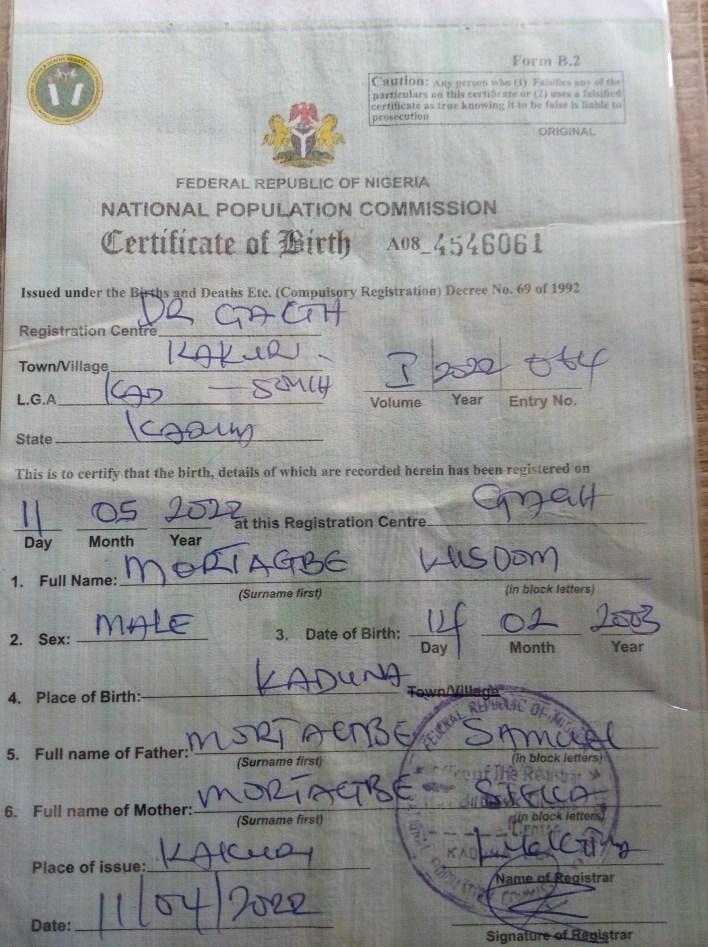 Form B.2
Caution: Any person who (1) Falsifies any of the
particulars on this certificate or (2) uses a falsified
certificate as true knowing it to be false is liable to
prosecution
ORIGINAL
FEDERAL REPUBLIC OF NIGERIA
NATIONAL POPULATION COMMISSION
Certificate of Birth A08_4546061
Issued under the Births and Deaths Etc. (Compulsory Registration) Decree No. 69 of 1992
Registration Centre DR GAGH
Town/Village KAKURI
L.G.A KAD - SOUTH
I 2022
Volume Year Entry No.
State KADUNA
This is to certify that the birth, details of which are recorded herein has been registered on
11 05 2022 at this Registration Centre GAGH
Day Month Year
1. Full Name: MORTAGBE WISDOM
(Surname first) (in block letters)
2. Sex: MALE 3. Date of Birth: 14 02 2003
Day Month Year
4. Place of Birth: KADUNA Town/Village
5. Full name of Father: MORTAGBE SAMUEL
(Surname first) (in block letters)
6. Full name of Mother: MORTAGBE STELLA
(Surname first) (in block letters)
Place of issue: KAKURI
Name of Registrar
Date: 11/04/2022
Signature of Registrar